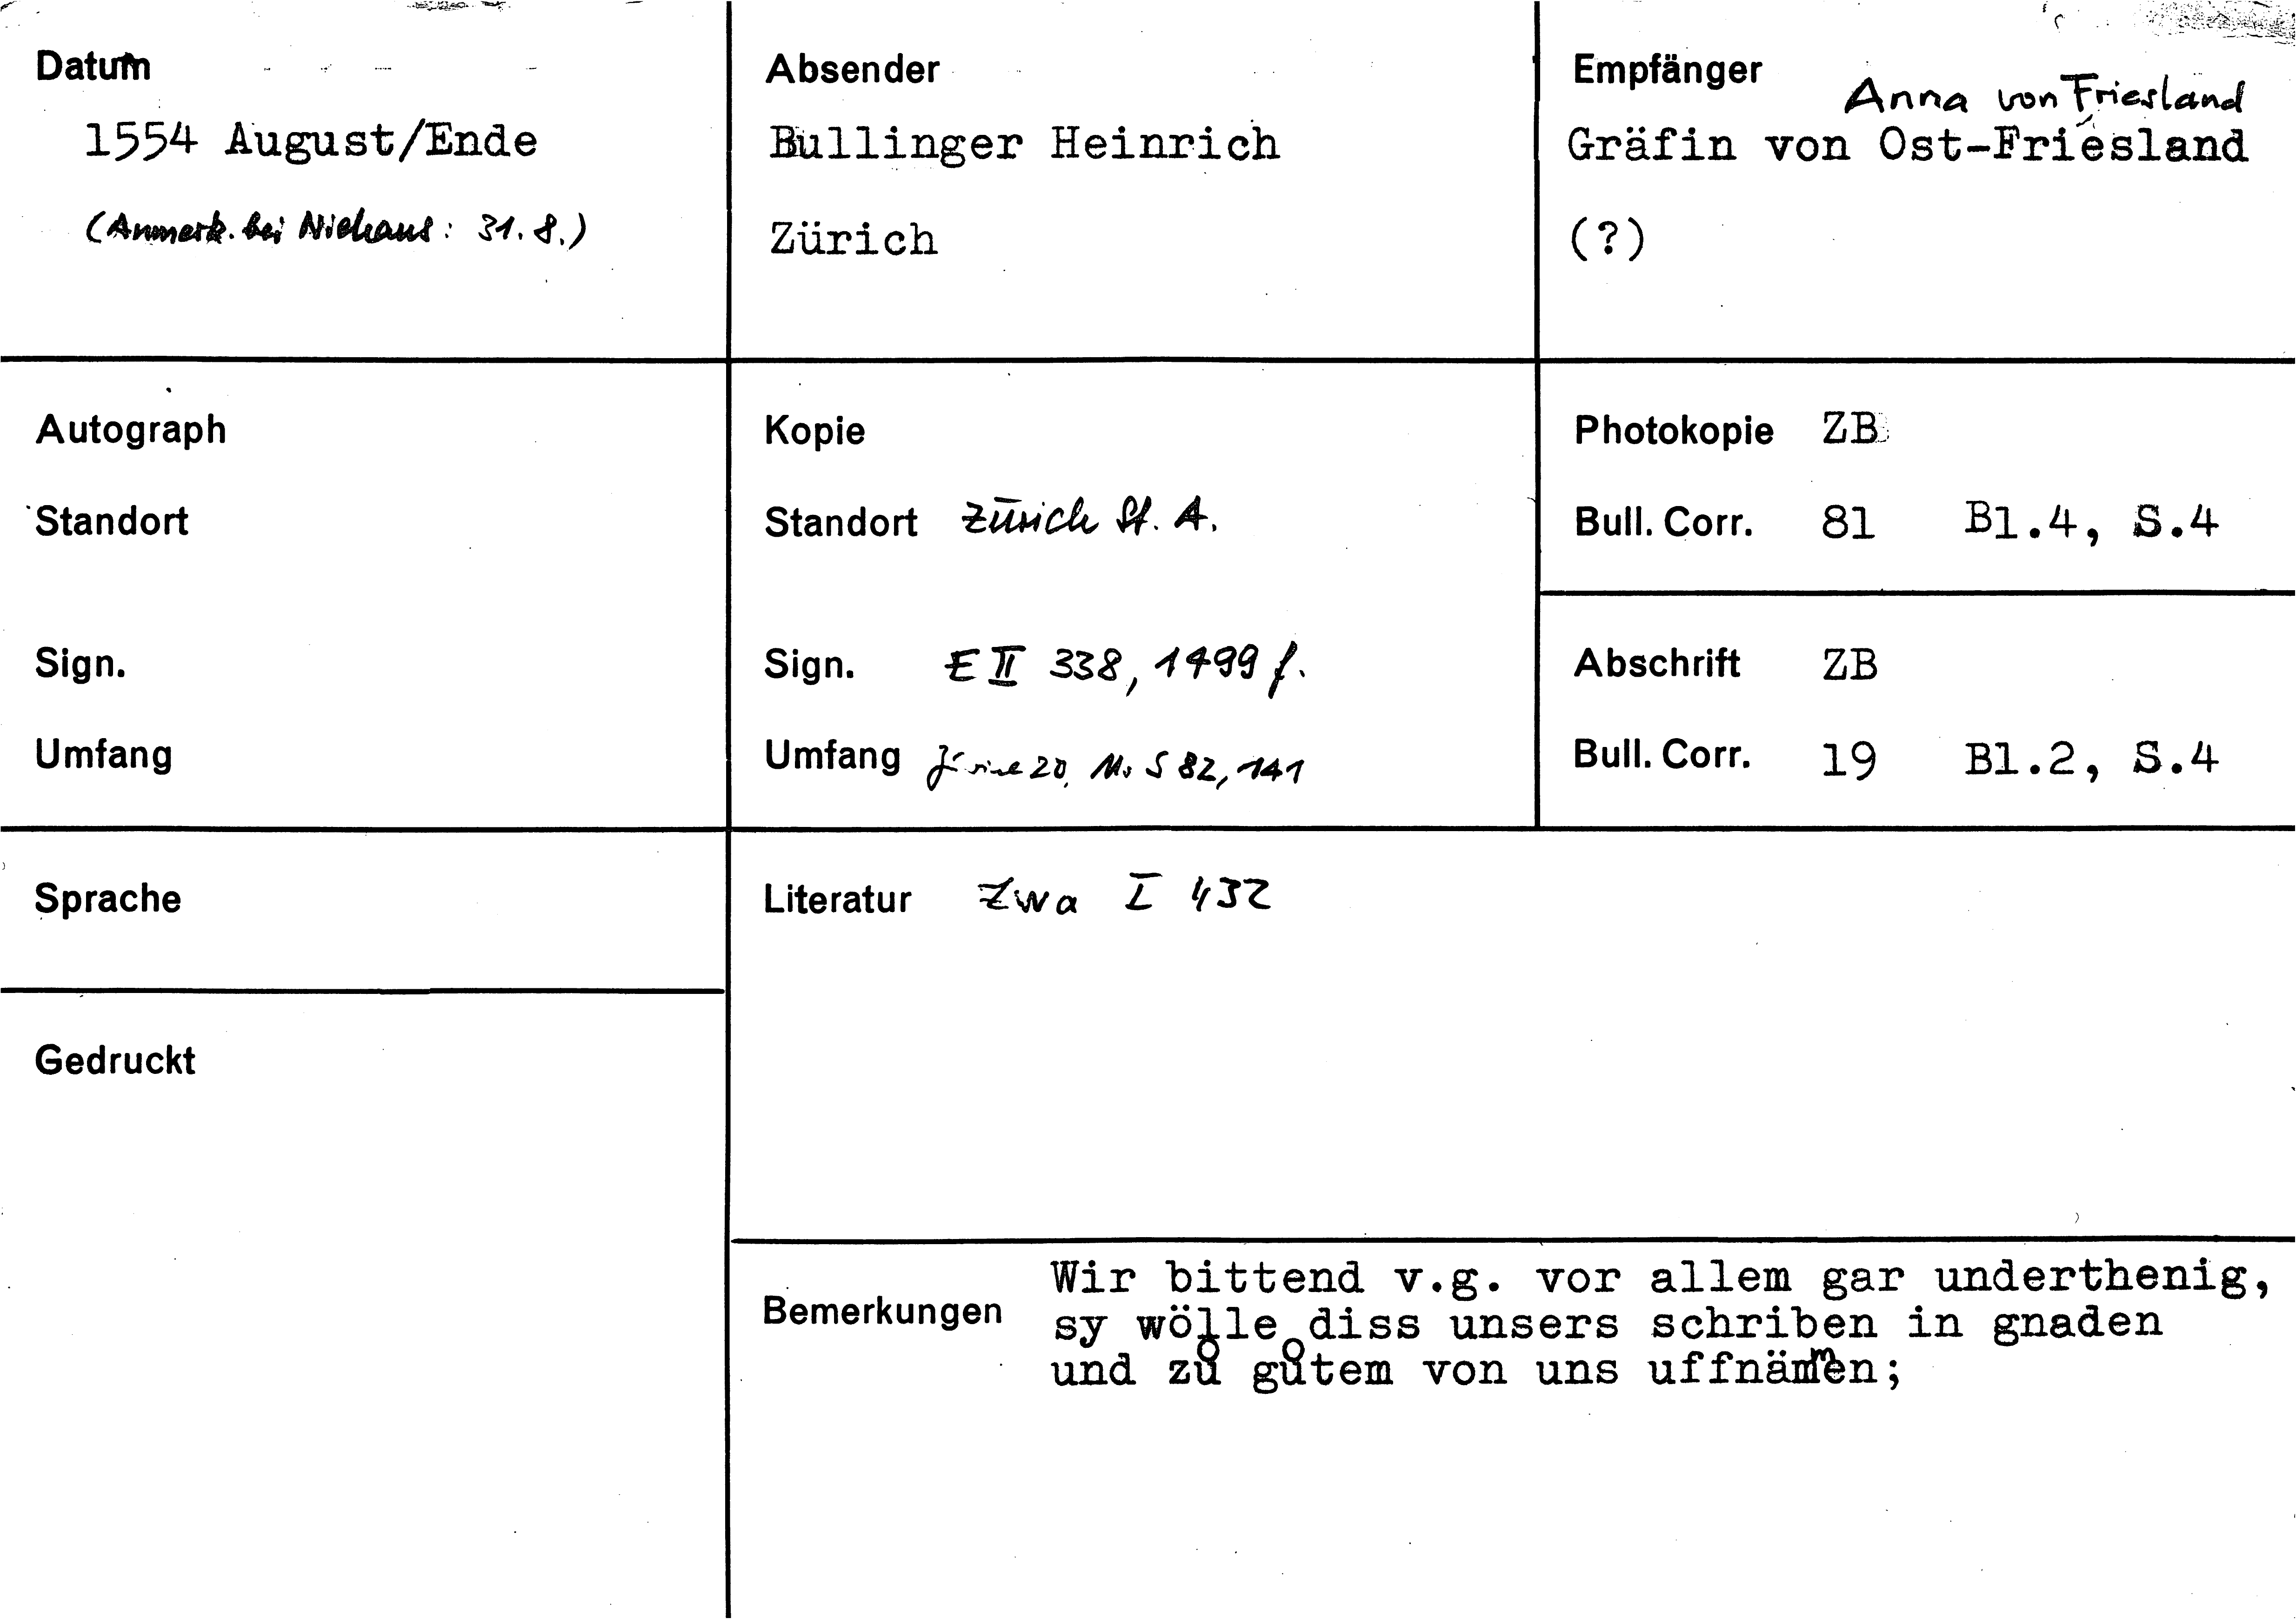 Datum
1554 August/Ende
(Anmerk. bei Niehaus: 31. 8.)
Absender
Bullinger Heinrich
Zürich
Empfänger
Anna von Friesland
Gräfin von Ost-Friesland
(?)
Autograph
Standort
Sign.
Umfang
Kopie
Standort Zürich St. A.
Sign. E II 338, 1499 f.
Umfang 20, Ms S 82, 141
Photokopie ZB
Bull. Corr. 81 Bl.4, S.4
Abschrift ZB
Bull. Corr. 19 Bl.2, S.4
Sprache
Gedruckt
Literatur Zwa I 432
Bemerkungen
Wir bittend v.g. vor allem gar underthenig,
sy wölle diss unsers schriben in gnaden
und zů gůtem von uns uffnämen;